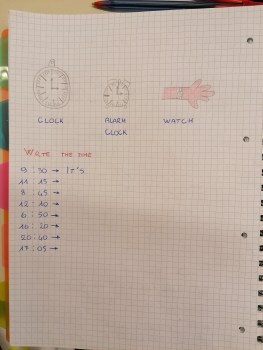 CLOCK
ALARM CLOCK
WATCH
WRITE THE TIME
9 : 30 → IT'S
11 : 15 →
3 : 45 →
12 : 10 →
6 : 50 →
16 : 20 →
20 : 40 →
17 : 05 →